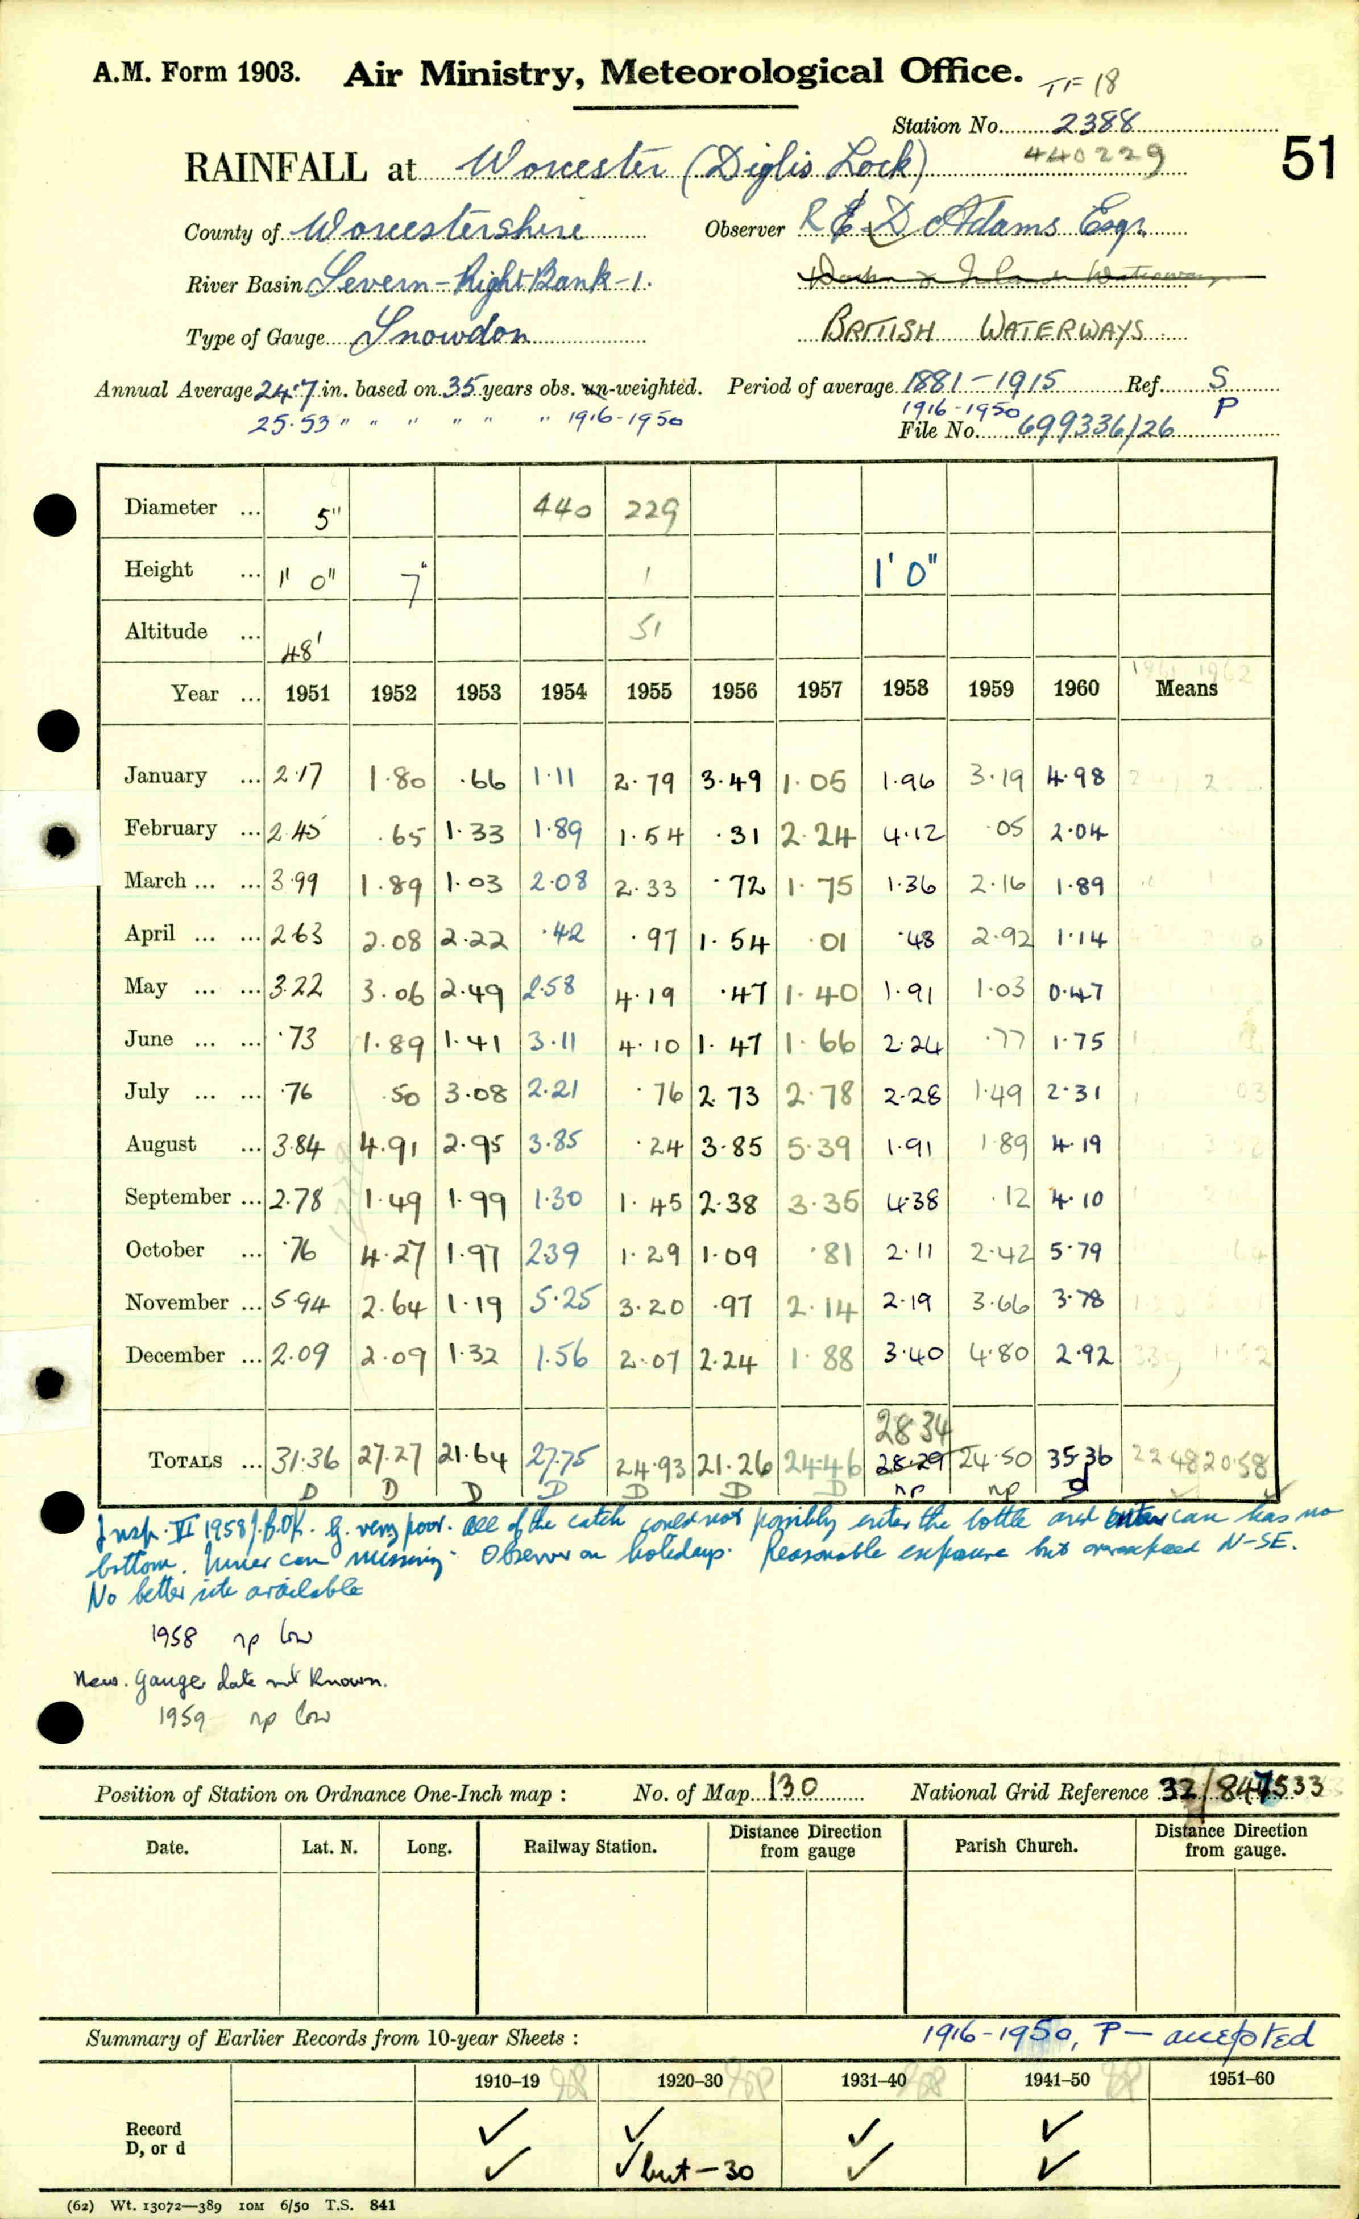 A.M. Form 1903. Air Ministry, Meteorological Office. TF 18
Station No. 2388
440229
51
RAINFALL at Worcester (Diglis Lock)
County of Worcestershire Observer R E D Adams Esqr.
River Basin Severn - Right Bank - 1. Docks & Inland Waterways
Type of Gauge Snowdon BRITISH WATERWAYS
Annual Average 24.7 in. based on 35 years obs. un-weighted. Period of average 1881-1915 Ref. S
25.53 " " " " " " 1916-1950 1916-1950 P
File No. 699336/26
Diameter ... 5" 440 229
Height ... 1' 0" 7" 1 1' 0"
Altitude ... 48' 51
1961 1962
Year ... 1951 1952 1953 1954 1955 1956 1957 1958 1959 1960 Means
January ... 2.17 1.80 .66 1.11 2.79 3.49 1.05 1.96 3.19 4.98
February ... 2.45 .65 1.33 1.89 1.54 .31 2.24 4.12 .05 2.04
March ... ... 3.99 1.89 1.03 2.08 2.33 .72 1.75 1.36 2.16 1.89
April ... ... 2.63 2.08 2.22 .42 .97 1.54 .01 .48 2.92 1.14
May ... ... 3.22 3.06 2.49 2.58 4.19 .47 1.40 1.91 1.03 0.47
June ... ... .73 1.89 1.41 3.11 4.10 1.47 1.66 2.24 .77 1.75
July ... ... .76 .50 3.08 2.21 .76 2.73 2.78 2.28 1.49 2.31
August ... 3.84 4.91 2.95 3.85 .24 3.85 5.39 1.91 1.89 4.19
September ... 2.78 1.49 1.99 1.30 1.45 2.38 3.35 4.38 .12 4.10
October ... .76 4.27 1.97 2.39 1.29 1.09 .81 2.11 2.42 5.79
November ... 5.94 2.64 1.19 5.25 3.20 .97 2.14 2.19 3.66 3.78
December ... 2.09 2.09 1.32 1.56 2.07 2.24 1.88 3.40 4.80 2.92
28.34
TOTALS ... 31.36 27.27 21.64 27.75 24.93 21.26 24.46 28.29 24.50 35.36 22.48 20.58
D D D D D D D np np d
Insp. VI 1958 J.B.OK. G. very poor. All of the catch could not possibly enter the bottle and outer can has no
bottom. Inner can missing. Observer on holidays. Reasonable exposure but overexposed N-SE.
No better site available
1958 np low
New. Gauge date not known.
1959 np low
Position of Station on Ordnance One-Inch map : No. of Map 130 National Grid Reference 32/847533
Date. Lat. N. Long. Railway Station. Distance from gauge Direction Parish Church. Distance from gauge. Direction
Summary of Earlier Records from 10-year Sheets : 1916-1950, P - accepted
1910-19 1920-30 1931-40 1941-50 1951-60
Record ✓ ✓ ✓ ✓
D, or d ✓ ✓ but -30 ✓ ✓
(62) Wt. 13072—389 10M 6/50 T.S. 841